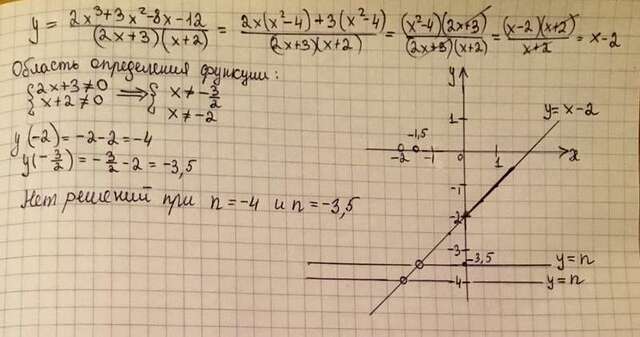 y = (2x³+3x²-8x-12)/((2x+3)(x+2)) = (2x(x²-4)+3(x²-4))/((2x+3)(x+2)) = ((x²-4)(2x+3))/((2x+3)(x+2)) = ((x-2)(x+2))/(x+2) = x-2
Область определения функции:
{2x+3≠0 ⟹ {x≠-3/2
{x+2≠0 {x≠-2
y(-2)=-2-2=-4
y(-3/2)=-3/2-2=-3,5
Нет решений при n=-4 и n=-3,5
y
y=x-2
1
-1,5
-2 -1 0 1 x
-1
-2
-3
-3,5 y=n
-4 y=n